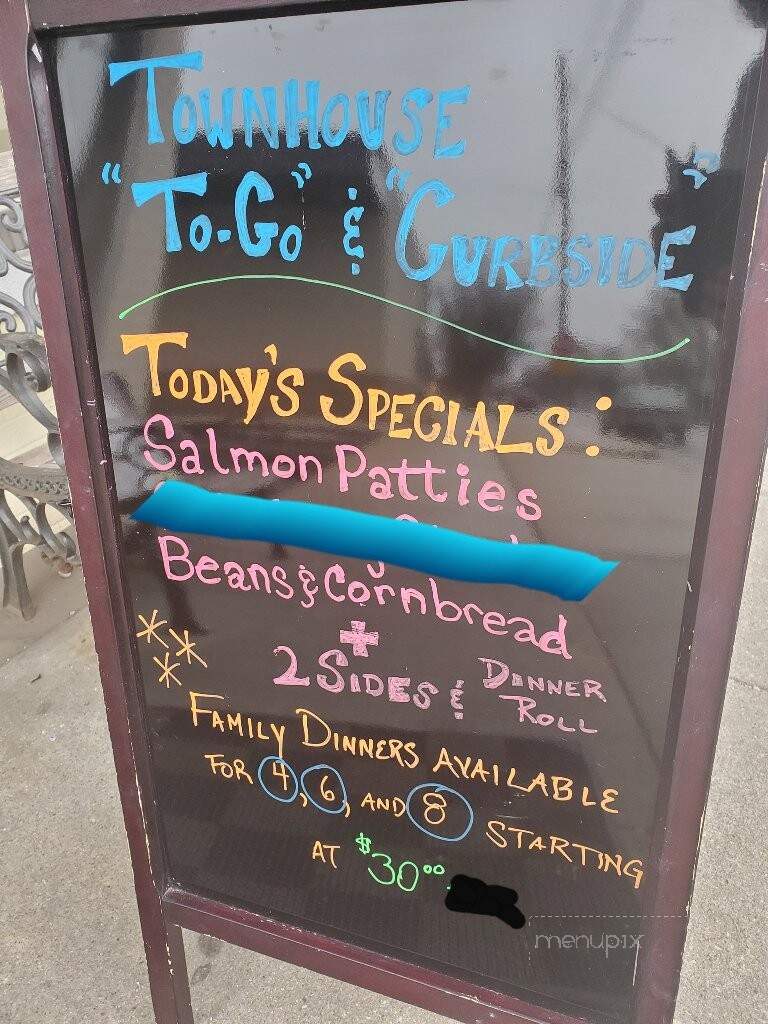 Townhouse
"To-Go" & "Curbside"
Today's Specials:
Salmon Patties
Beans & Cornbread
+
2 Sides & Dinner Roll
Family Dinners Available
for 4, 6, and 8 starting
at $30.00
menupix